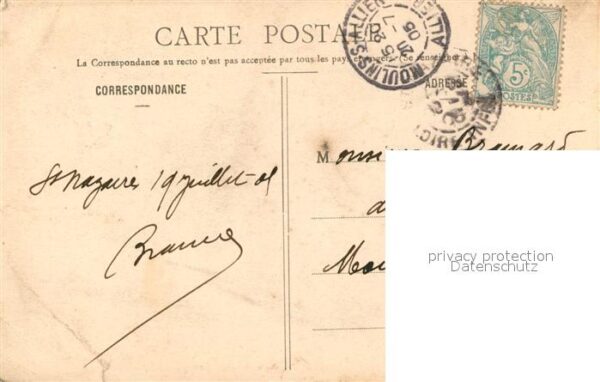 CARTE POSTALE
La Correspondance au recto n'est pas acceptée par tous les pays étrangers (Se renseigner
CORRESPONDANCE
ADRESSE
MOULINS ALLIER
20 7 05
5c
POSTES
St Nazaire 19 juillet 05
Monsieur
privacy protection
Datenschutz